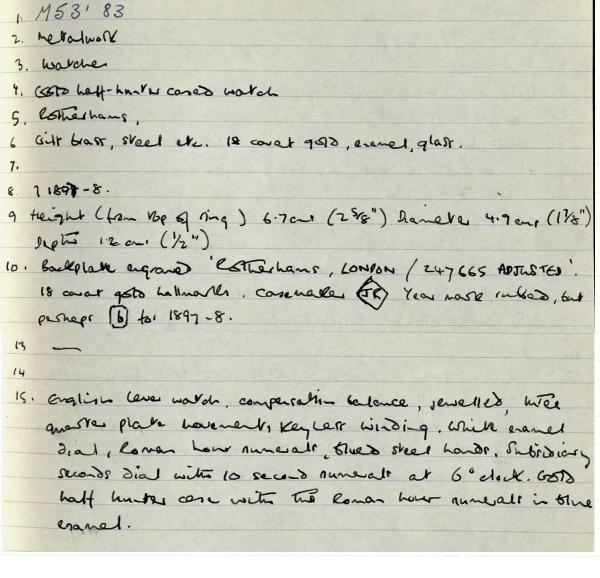 1. M53' 83
2. Metalwork
3. Watches
4. Gold half-hunter cased watch
5. Rotherhams,
6 Gilt brass, steel etc. 18 carat gold, enamel, glass.
7.
8. ? 1897-8.
9 Height (from top of ring) 6.7cms (2 5/8") Diameter 4.9cms (1 7/8")
Depth 1.2 cms (1/2")
10. Backplate engraved 'Rotherhams, LONDON / 247665 ADJUSTED'.
18 carat gold hallmarks. Casemaker JR Year mark rubbed, but
perhaps b for 1897-8.
13 —
14
15. English lever watch, compensation balance, jewelled, three
quarter plate movement, keyless winding. White enamel
dial, Roman hour numerals, blued steel hands. Subsidiary
seconds dial with 10 second numerals at 6 o'clock. Gold
half hunter case with the Roman hour numerals in blue
enamel.